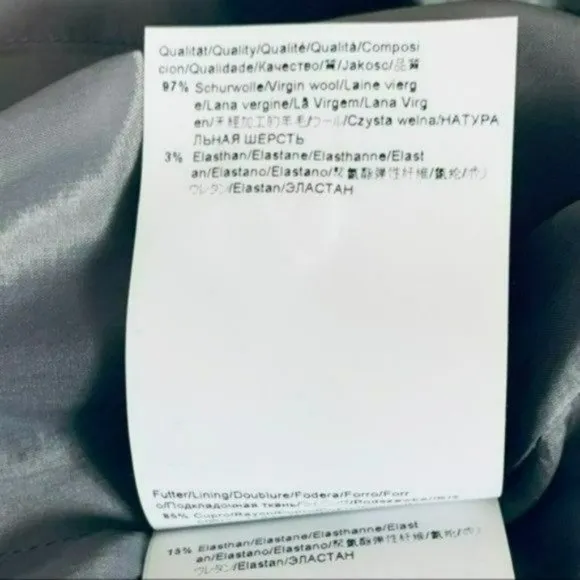 Qualität/Quality/Qualité/Qualità/Composi
cion/Qualidade/Качество/質/Jakosc/品質
97% Schurwolle/Virgin wool/Laine vierg
e/Lana vergine/Lã Virgem/Lana Virg
en/未經加工的羊毛/ウール/Czysta welna/НАТУРА
ЛЬНАЯ ШЕРСТЬ
3% Elasthan/Elastane/Elasthanne/Elast
an/Elastano/Elastano/聚氨酯弹性纤维/氨纶/ポリ
ウレタン/Elastan/ЭЛАСТАН
Futter/Lining/Doublure/Fodera/Forro/Forr
o/Подкладочная ткань/
Cupro/
15% Elasthan/Elastane/Elasthanne/Elast
an/Elastano/Elastano/聚氨酯弹性纤维/氨纶/ポリ
ウレタン/Elastan/ЭЛАСТАН